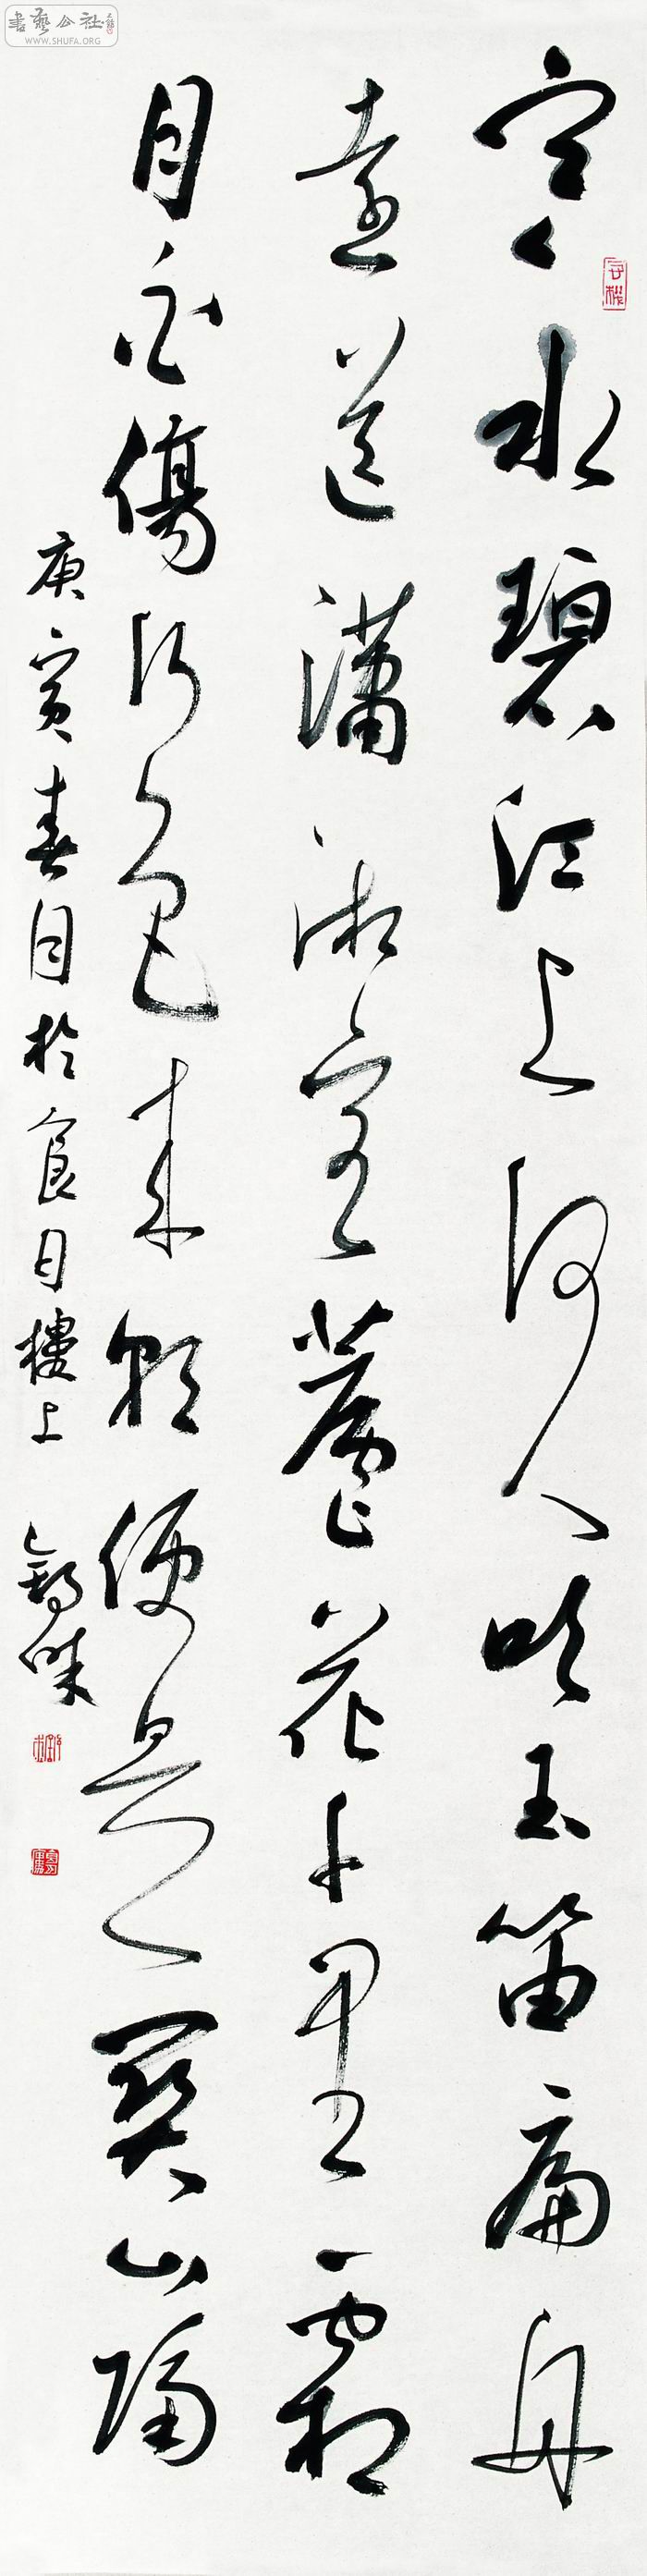 書藝公社
WWW.SHUFA.ORG
寒水碧江上何人吹玉笛扁舟
遠送瀟湘客蘆花千里霜
月白傷行色來朝便是關山隔
庚寅春月於食月樓上